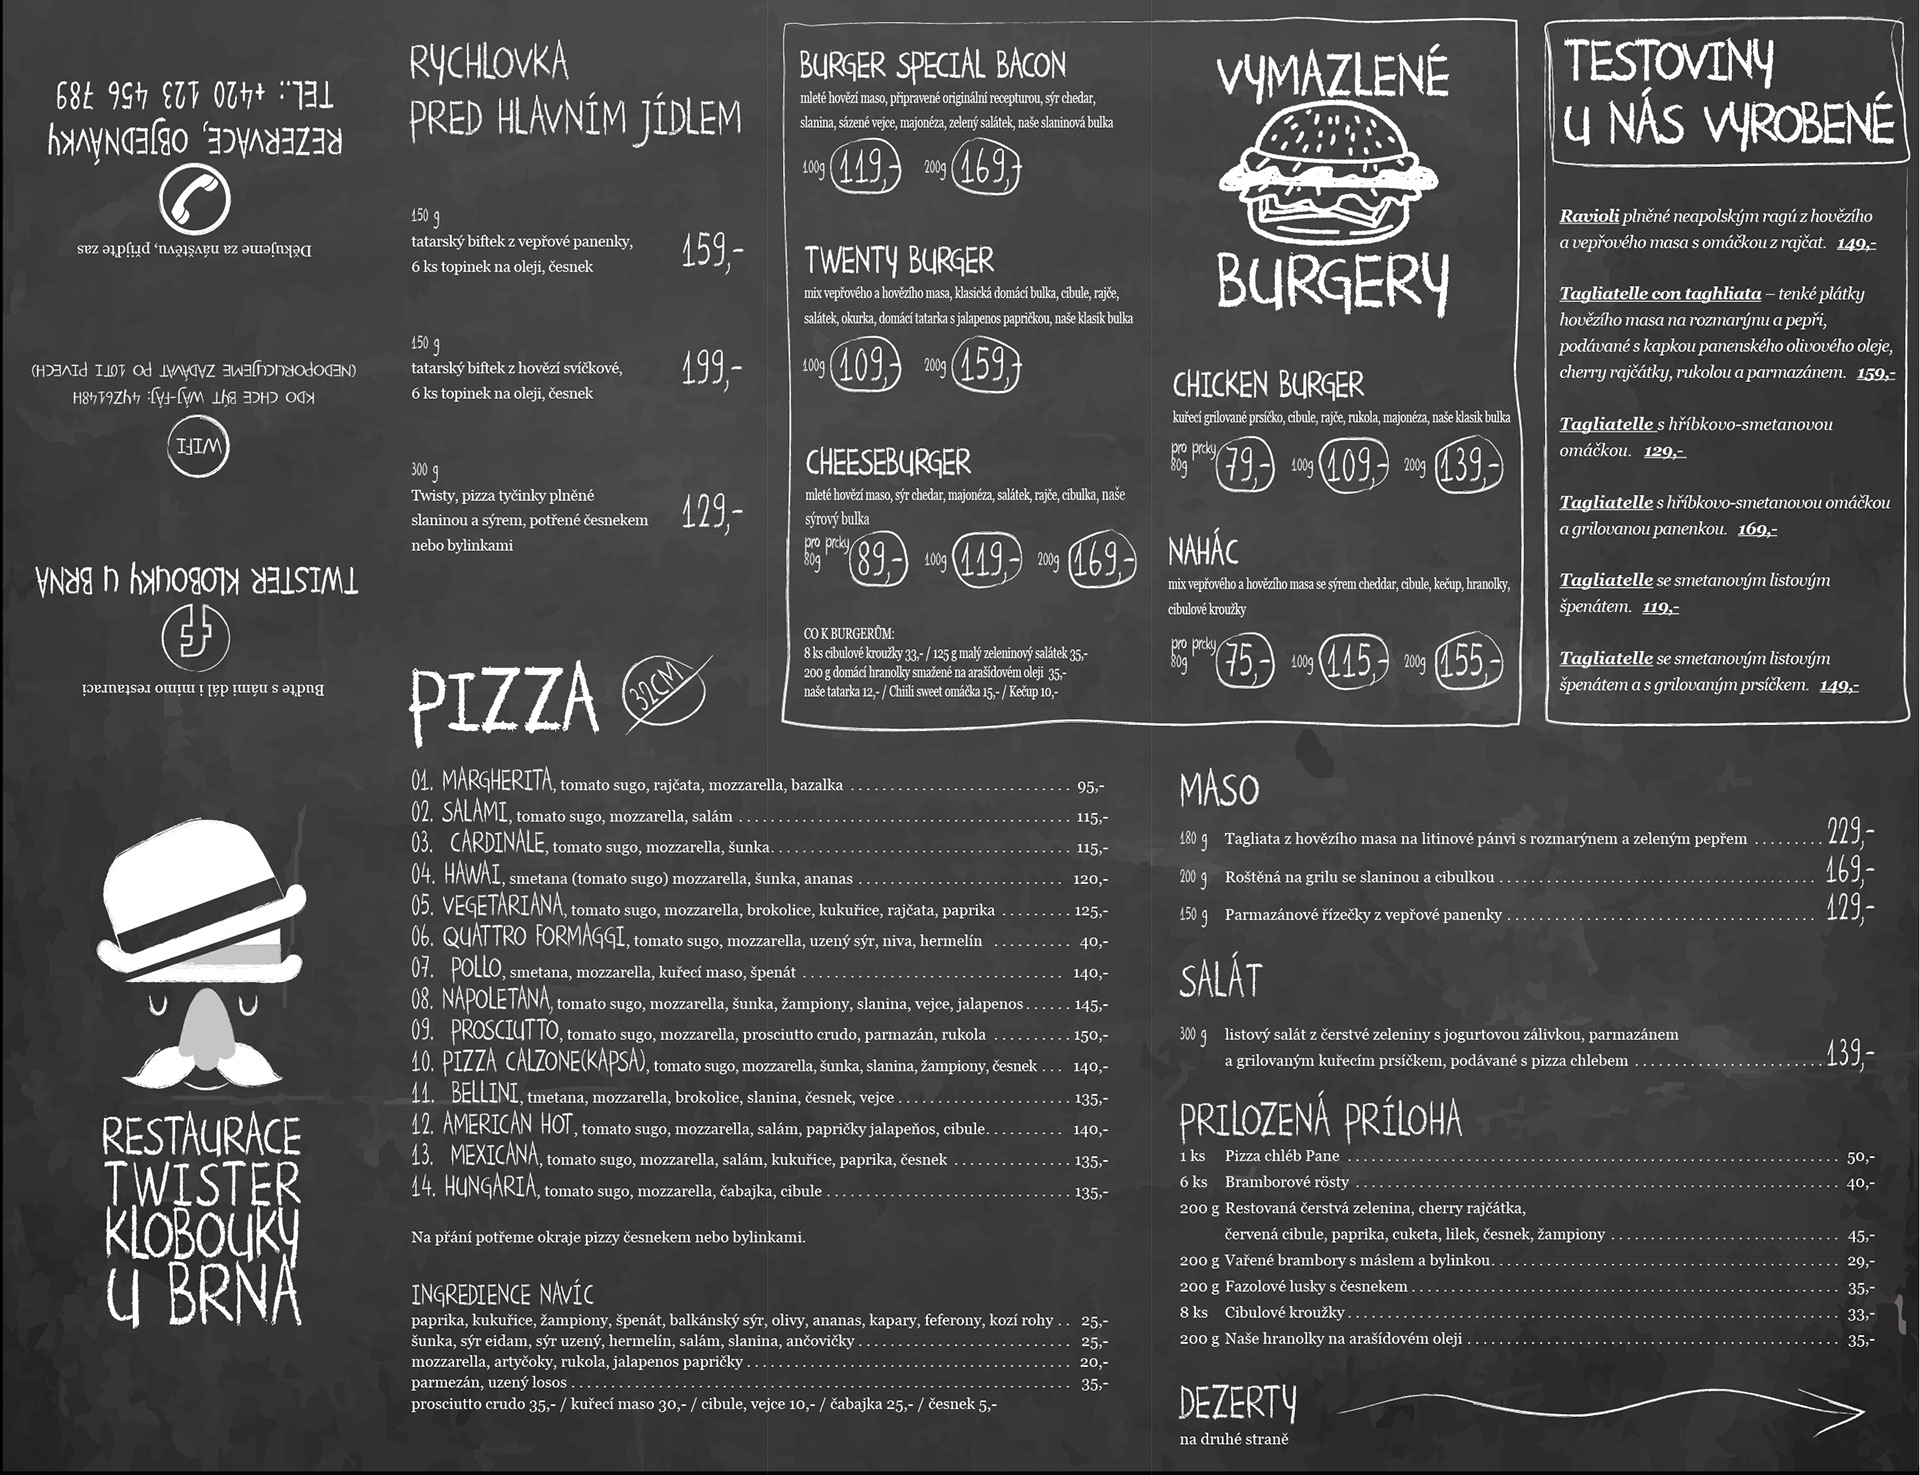 TEL.: +420 123 456 789
REZERVACE, OBJEDNÁVKY
Děkujeme za návštěvu, přijďte zas
(NEDOPORUCUJEME ZADÁVAT PO 10TI PIVECH)
KDO CHCE BÝT WAJ-FAJ: 4YZ6148H
WIFI
TWISTER KLOBOUKY U BRNA
f
Buďte s námi dál i mimo restauraci
RESTAURACE
TWISTER
KLOBOUKY
U BRNA
RYCHLOVKA
PRED HLAVNÍM JÍDLEM
150 g
tatarský biftek z vepřové panenky,
6 ks topinek na oleji, česnek
159,-
150 g
tatarský biftek z hovězí svíčkové,
6 ks topinek na oleji, česnek
199,-
300 g
Twisty, pizza tyčinky plněné
slaninou a sýrem, potřené česnekem
nebo bylinkami
129,-
BURGER SPECIAL BACON
mleté hovězí maso, připravené originální recepturou, sýr chedar,
slanina, sázené vejce, majonéza, zelený salátek, naše slaninová bulka
100g 119,- 200g 169,-
TWENTY BURGER
mix vepřového a hovězího masa, klasická domácí bulka, cibule, rajče,
salátek, okurka, domácí tatarka s jalapenos papričkou, naše klasik bulka
100g 109,- 200g 159,-
CHEESEBURGER
mleté hovězí maso, sýr chedar, majonéza, salátek, rajče, cibulka, naše
sýrový bulka
pro prcky 80g 89,- 100g 119,- 200g 169,-
CO K BURGERŮM:
8 ks cibulové kroužky 33,- / 125 g malý zeleninový salátek 35,-
200 g domácí hranolky smažené na arašídovém oleji 35,-
naše tatarka 12,- / Chiili sweet omáčka 15,- / Kečup 10,-
VYMAZLENÉ
BURGERY
CHICKEN BURGER
kuřecí grilované prsíčko, cibule, rajče, rukola, majonéza, naše klasik bulka
pro prcky 80g 79,- 100g 109,- 200g 139,-
NAHÁC
mix vepřového a hovězího masa se sýrem cheddar, cibule, kečup, hranolky,
cibulové kroužky
pro prcky 80g 75,- 100g 115,- 200g 155,-
TESTOVINY
U NÁS VYROBENÉ
Ravioli plněné neapolským ragú z hovězího
a vepřového masa s omáčkou z rajčat. 149,-
Tagliatelle con taghliata – tenké plátky
hovězího masa na rozmarýnu a pepři,
podávané s kapkou panenského olivového oleje,
cherry rajčátky, rukolou a parmazánem. 159,-
Tagliatelle s hříbkovo-smetanovou
omáčkou. 129,-
Tagliatelle s hříbkovo-smetanovou omáčkou
a grilovanou panenkou. 169,-
Tagliatelle se smetanovým listovým
špenátem. 119,-
Tagliatelle se smetanovým listovým
špenátem a s grilovaným prsíčkem. 149,-
PIZZA 32CM
01. MARGHERITA, tomato sugo, rajčata, mozzarella, bazalka 95,-
02. SALAMI, tomato sugo, mozzarella, salám 115,-
03. CARDINALE, tomato sugo, mozzarella, šunka 115,-
04. HAWAI, smetana (tomato sugo) mozzarella, šunka, ananas 120,-
05. VEGETARIANA, tomato sugo, mozzarella, brokolice, kukuřice, rajčata, paprika 125,-
06. QUATTRO FORMAGGI, tomato sugo, mozzarella, uzený sýr, niva, hermelín 40,-
07. POLLO, smetana, mozzarella, kuřecí maso, špenát 140,-
08. NAPOLETANA, tomato sugo, mozzarella, šunka, žampiony, slanina, vejce, jalapenos 145,-
09. PROSCIUTTO, tomato sugo, mozzarella, prosciutto crudo, parmazán, rukola 150,-
10. PIZZA CALZONE(KAPSA), tomato sugo, mozzarella, šunka, slanina, žampiony, česnek 140,-
11. BELLINI, tmetana, mozzarella, brokolice, slanina, česnek, vejce 135,-
12. AMERICAN HOT, tomato sugo, mozzarella, salám, papričky jalapeňos, cibule 140,-
13. MEXICANA, tomato sugo, mozzarella, salám, kukuřice, paprika, česnek 135,-
14. HUNGARIA, tomato sugo, mozzarella, čabajka, cibule 135,-
Na přání potřeme okraje pizzy česnekem nebo bylinkami.
INGREDIENCE NAVÍC
paprika, kukuřice, žampiony, špenát, balkánský sýr, olivy, ananas, kapary, feferony, kozí rohy 25,-
šunka, sýr eidam, sýr uzený, hermelín, salám, slanina, ančovičky 25,-
mozzarella, artyčoky, rukola, jalapenos papričky 20,-
parmezán, uzený losos 35,-
prosciutto crudo 35,- / kuřecí maso 30,- / cibule, vejce 10,- / čabajka 25,- / česnek 5,-
MASO
180 g Tagliata z hovězího masa na litinové pánvi s rozmarýnem a zeleným pepřem 229,-
200 g Roštěná na grilu se slaninou a cibulkou 169,-
150 g Parmazánové řízečky z vepřové panenky 129,-
SALÁT
300 g listový salát z čerstvé zeleniny s jogurtovou zálivkou, parmazánem
a grilovaným kuřecím prsíčkem, podávané s pizza chlebem 139,-
PRILOZENÁ PRÍLOHA
1 ks Pizza chléb Pane 50,-
6 ks Bramborové rösty 40,-
200 g Restovaná čerstvá zelenina, cherry rajčátka,
červená cibule, paprika, cuketa, lilek, česnek, žampiony 45,-
200 g Vařené brambory s máslem a bylinkou 29,-
200 g Fazolové lusky s česnekem 35,-
8 ks Cibulové kroužky 33,-
200 g Naše hranolky na arašídovém oleji 35,-
DEZERTY
na druhé straně